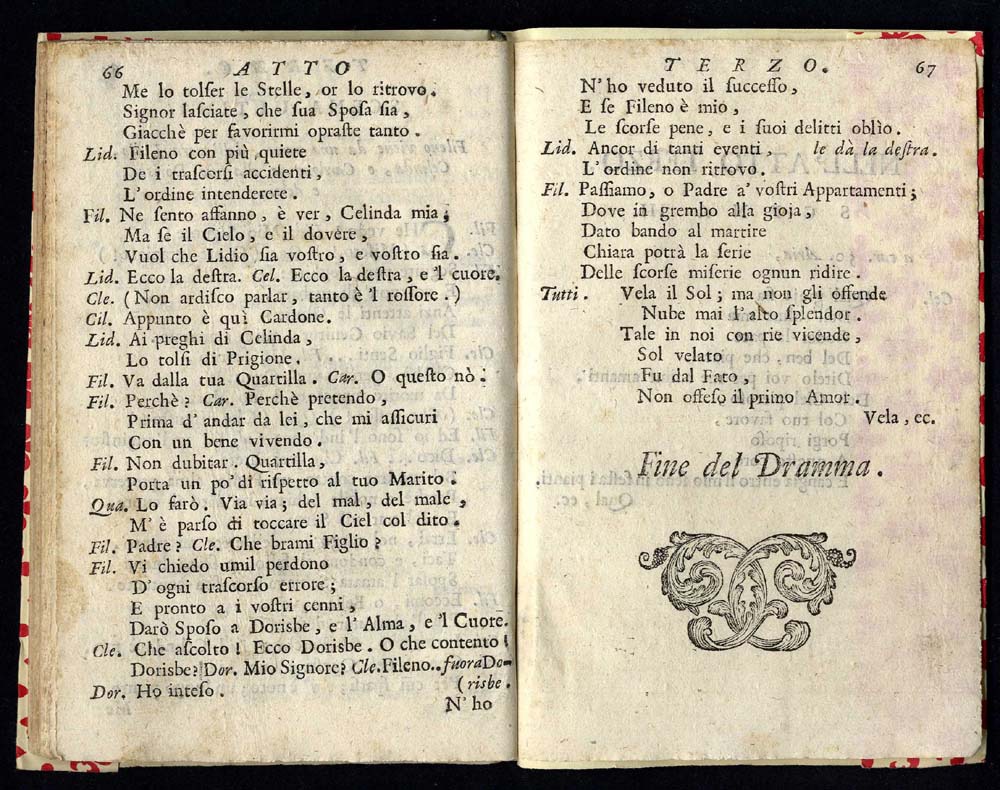 66 ATTO
Me lo tolſer le Stelle, or lo ritrovo.
Signor laſciate, che ſua Spoſa ſia,
Giacchè per favorirmi opraſte tanto.
Lid. Fileno con più quiete
De i traſcorſi accidenti,
L'ordine intenderete.
Fil. Ne ſento affanno, è ver, Celinda mia;
Ma ſe il Cielo, e il dovere,
Vuol che Lidio ſia voſtro, e voſtro ſia.
Lid. Ecco la deſtra. Cel. Ecco la deſtra, e 'l cuore.
Cle. (Non ardiſco parlar, tanto è 'l roſſore.)
Cil. Appunto è quì Cardone.
Lid. Ai preghi di Celinda,
Lo tolſi di Prigione.
Fil. Va dalla tua Quartilla. Car. O queſto nò.
Fil. Perchè? Car. Perchè pretendo,
Prima d' andar da lei, che mi aſſicuri
Con un bene vivendo.
Fil. Non dubitar. Quartilla,
Porta un po' di riſpetto al tuo Marito.
Qua. Lo farò. Via via; del mal, del male,
M' è parſo di toccare il Ciel col dito.
Fil. Padre? Cle. Che brami Figlio?
Fil. Vi chiedo umil perdono
D' ogni traſcorſo errore;
E pronto a i voſtri cenni,
Darò Spoſo a Dorisbe, e l' Alma, e 'l Cuore.
Cle. Che aſcolto! Ecco Dorisbe. O che contento!
Dorisbe? Dor. Mio Signore? Cle. Fileno.. fuora Do-
Dor. Ho inteſo. (risbe.
N' ho
TERZO. 67
N' ho veduto il ſucceſſo,
E ſe Fileno è mio,
Le ſcorſe pene, e i ſuoi delitti oblìo.
Lid. Ancor di tanti eventi, le dà la deſtra.
L' ordine non ritrovo.
Fil. Paſſiamo, o Padre a' voſtri Appartamenti;
Dove in grembo alla gioja,
Dato bando al martire
Chiara potrà la ſerie
Delle ſcorſe miſerie ognun ridire.
Tutti. Vela il Sol; ma non gli offende
Nube mai l' alto ſplendor.
Tale in noi con rie vicende,
Sol velato
Fu dal Fato,
Non offeſo il primo Amor.
Vela, ec.
Fine del Dramma.